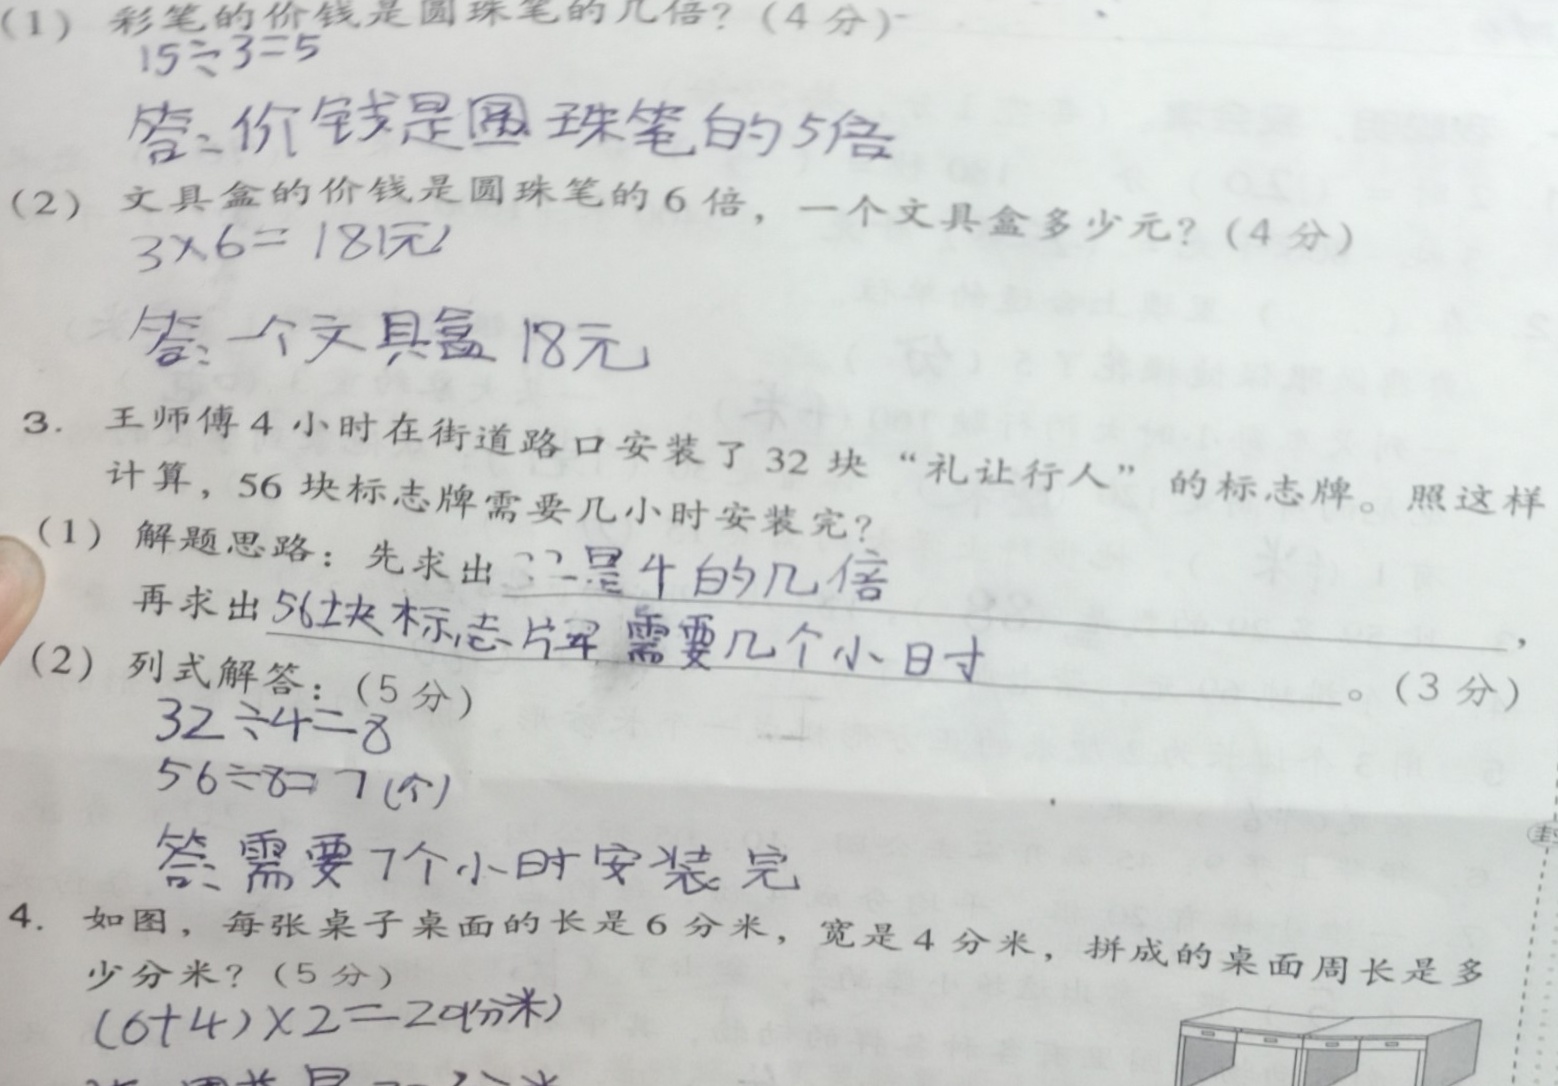 (1) 彩笔的价钱是圆珠笔的几倍？(4分)
15÷3=5
答：价钱是圆珠笔的5倍
(2) 文具盒的价钱是圆珠笔的6倍，一个文具盒多少元？(4分)
3×6=18(元)
答：一个文具盒18元
3. 王师傅4小时在街道路口安装了32块“礼让行人”的标志牌。照这样
计算，56块标志牌需要几小时安装完？
(1) 解题思路：先求出32是4的几倍，
再求出56块标志牌需要几个小时。(3分)
(2) 列式解答：(5分)
32÷4=8
56÷8=7(个)
答：需要7个小时安装完
4. 如图，每张桌子桌面的长是6分米，宽是4分米，拼成的桌面周长是多
少分米？(5分)
(6+4)×2=20(分米)